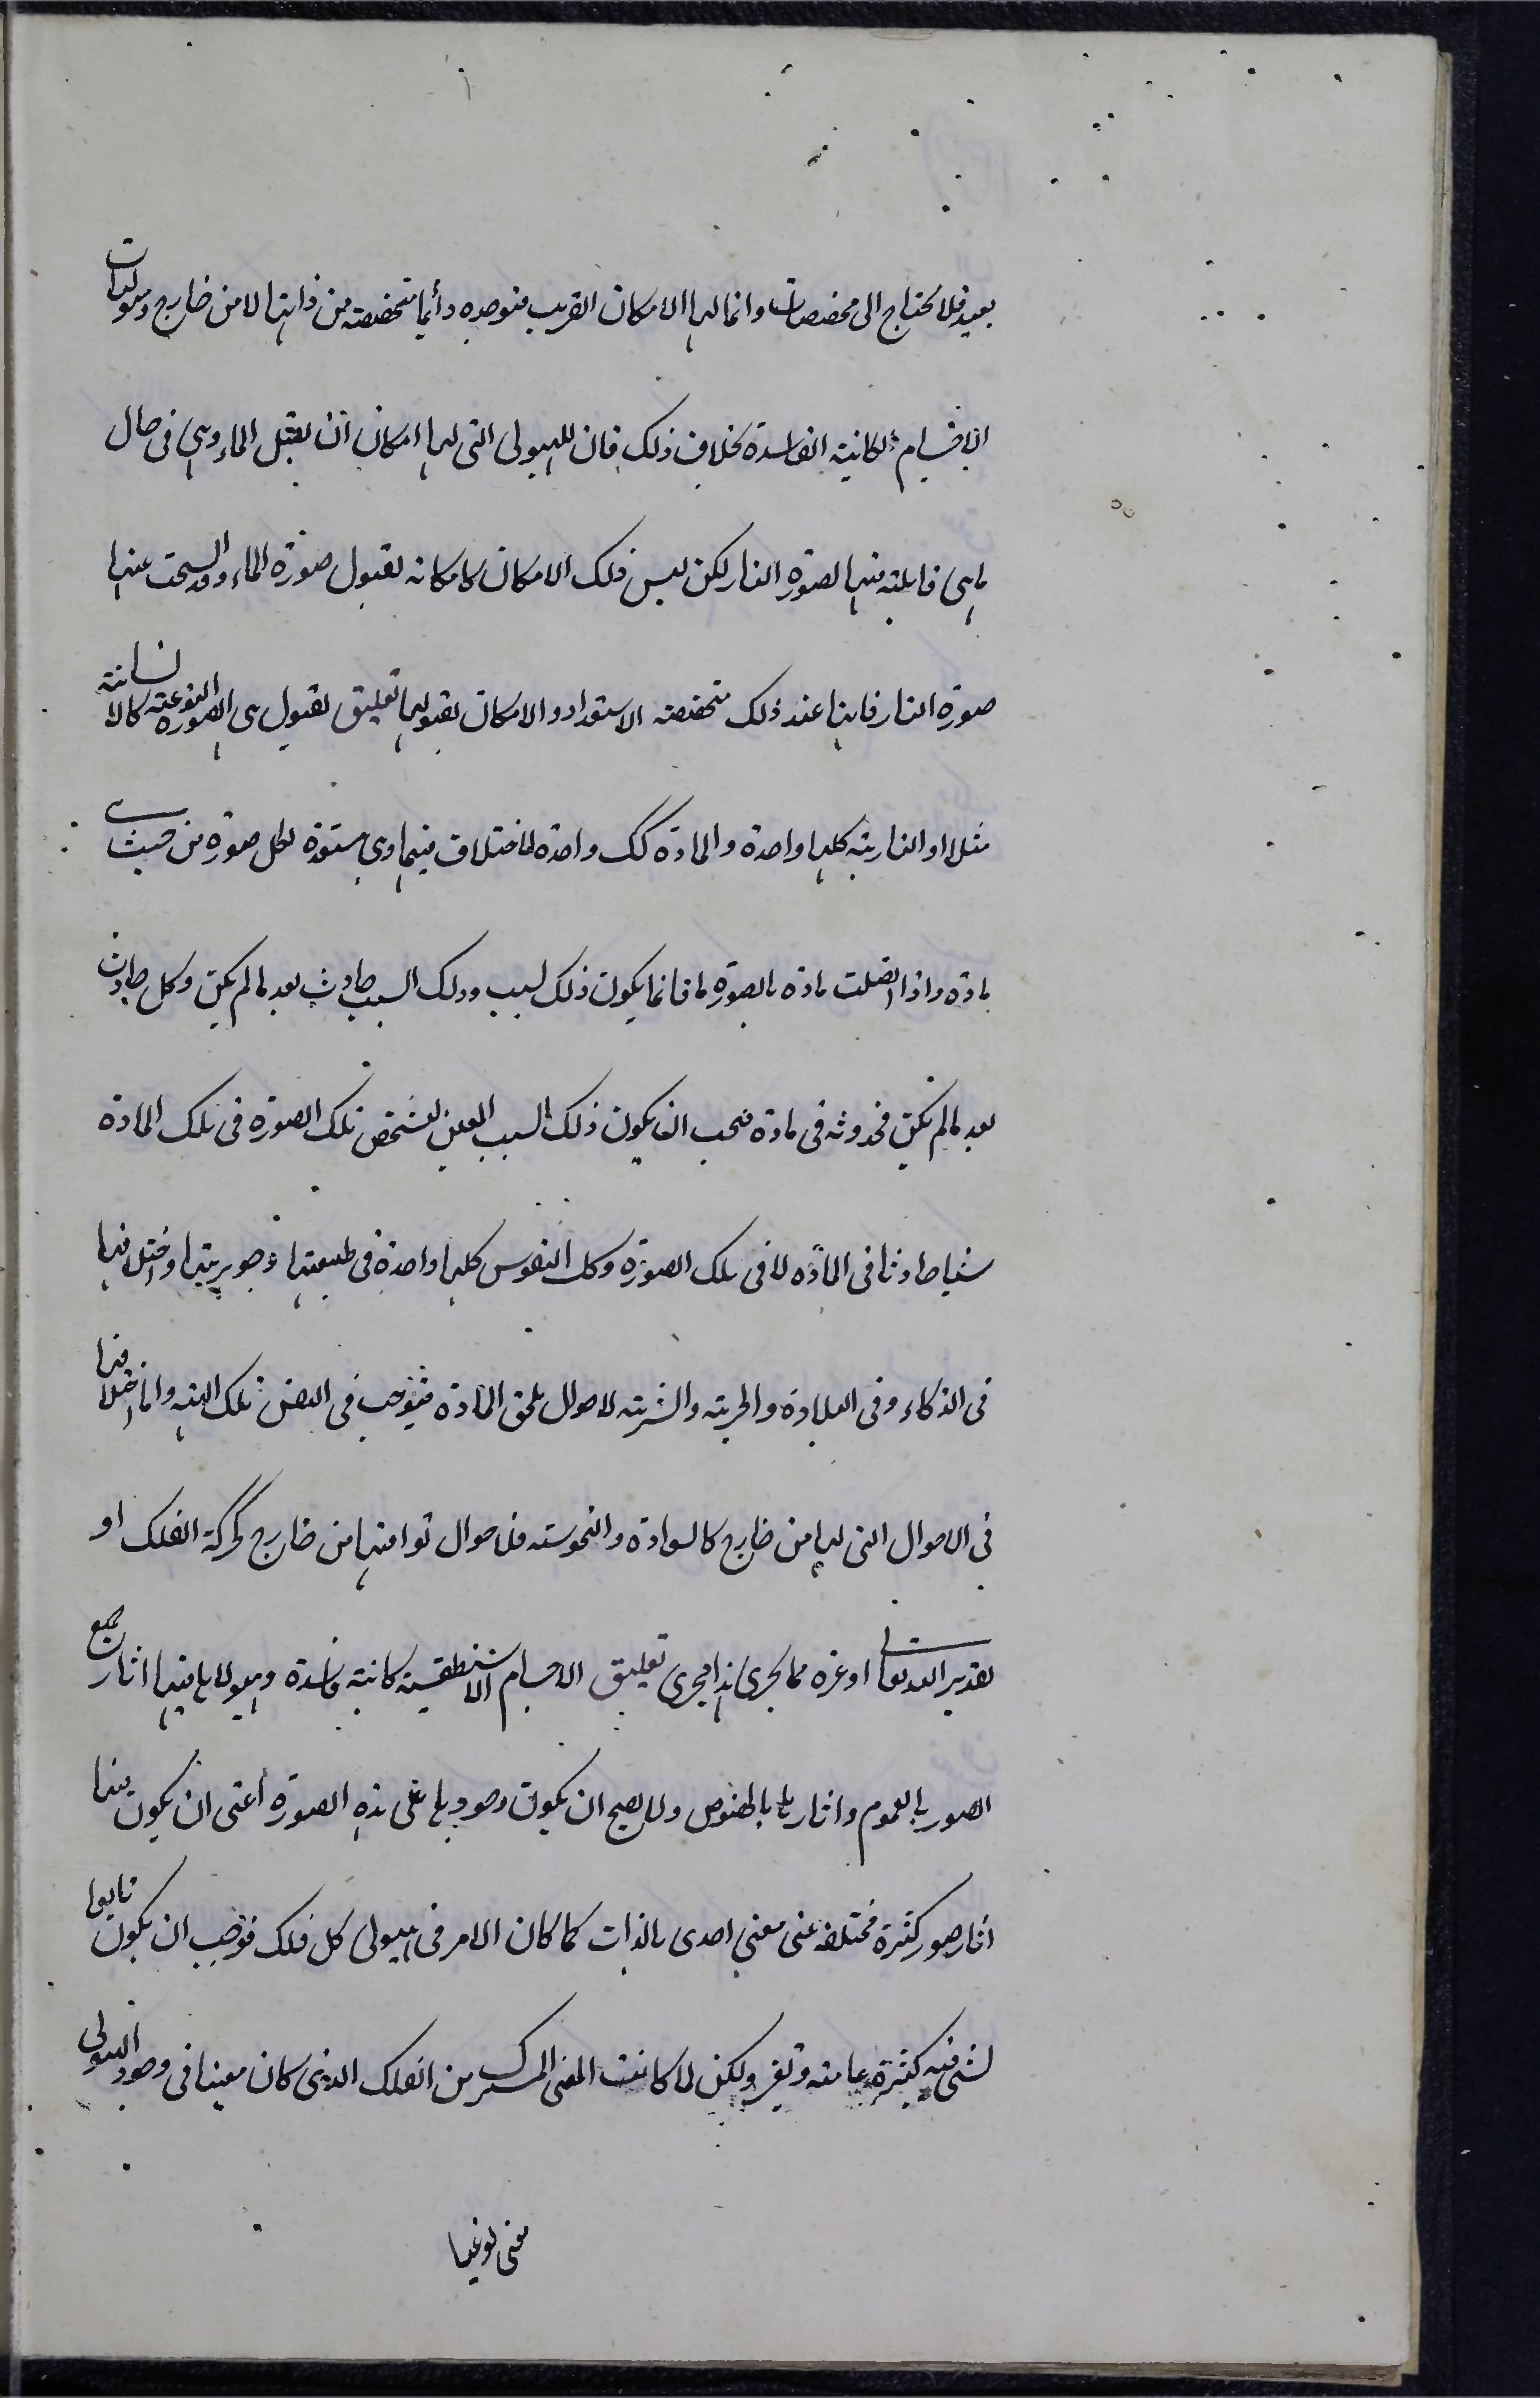 بعيد فلا يحتاج الى مخصصات وانما لها الامكان القريب فتوجده دائما متخصصة من ذاتها لا من خارج وهيولات
الاجسام الكائنة الفاسدة بخلاف ذلك فان للهيولى التى لها امكان ان يقبل الماء وهى فى حال
ما هى قابلة فيها لصورة النار لكن ليس ذلك الامكان كامكانه لقبول صورة الماء وقد انسلخت عنها
صورة النار فانها عند ذلك متخصصة الاستعداد والامكان لقبولها تعليق لقبول هى الصورة النوعية كالانسانية
مثلا او النارية كلها واحدة والمادة كك واحدة لا اختلاف فيها وهى مستعدة لكل صورة من حيث هى
مادة واذا اتصلت مادة بالصورة ما فانما يكون ذلك لسبب وذلك السبب حادث بعد ما لم يكن وكل حادث
بعد ما لم يكن فحدوثه فى مادة فيجب ان يكون ذلك السبب المعين لتشخص تلك الصورة فى تلك المادة
شيئا حادثا فى المادة لا فى تلك الصورة وكك النفوس كلها واحدة فى طبيعتها وجوهريتها واختلافها
فى الذكاء وفى البلادة والخيرية والشرية لاحوال يلحق المادة فيوجب فى النفس تلك الهيئة وانما اختلافها
فى الاحوال التى لها من خارج كالسعادة والنحوسة فلاحوال توافيها من خارج كحركة الفلك او
تقدير الله تعالى او غيره مما يجرى هذا مجرى تعليق الاجسام الاسطقسية كائنة فاسدة وهيولاها فيها اثار جميع
الصور بالعموم واثارها بالخصوص ولا يصح ان يكون وجودها على هذه الصورة اعنى ان يكون فيها
اثار صور كثيرة مختلفة عن معنى احدى بالذات كما كان الامر فى هيولى كل فلك فوجب ان يكون تابعا
لشئ فيه كثيرة عامة وتغير ولكن لما كانت المعنى المشترك من الفلك الذى كان معينا فى وجود الهيولى
معنى نوعيا